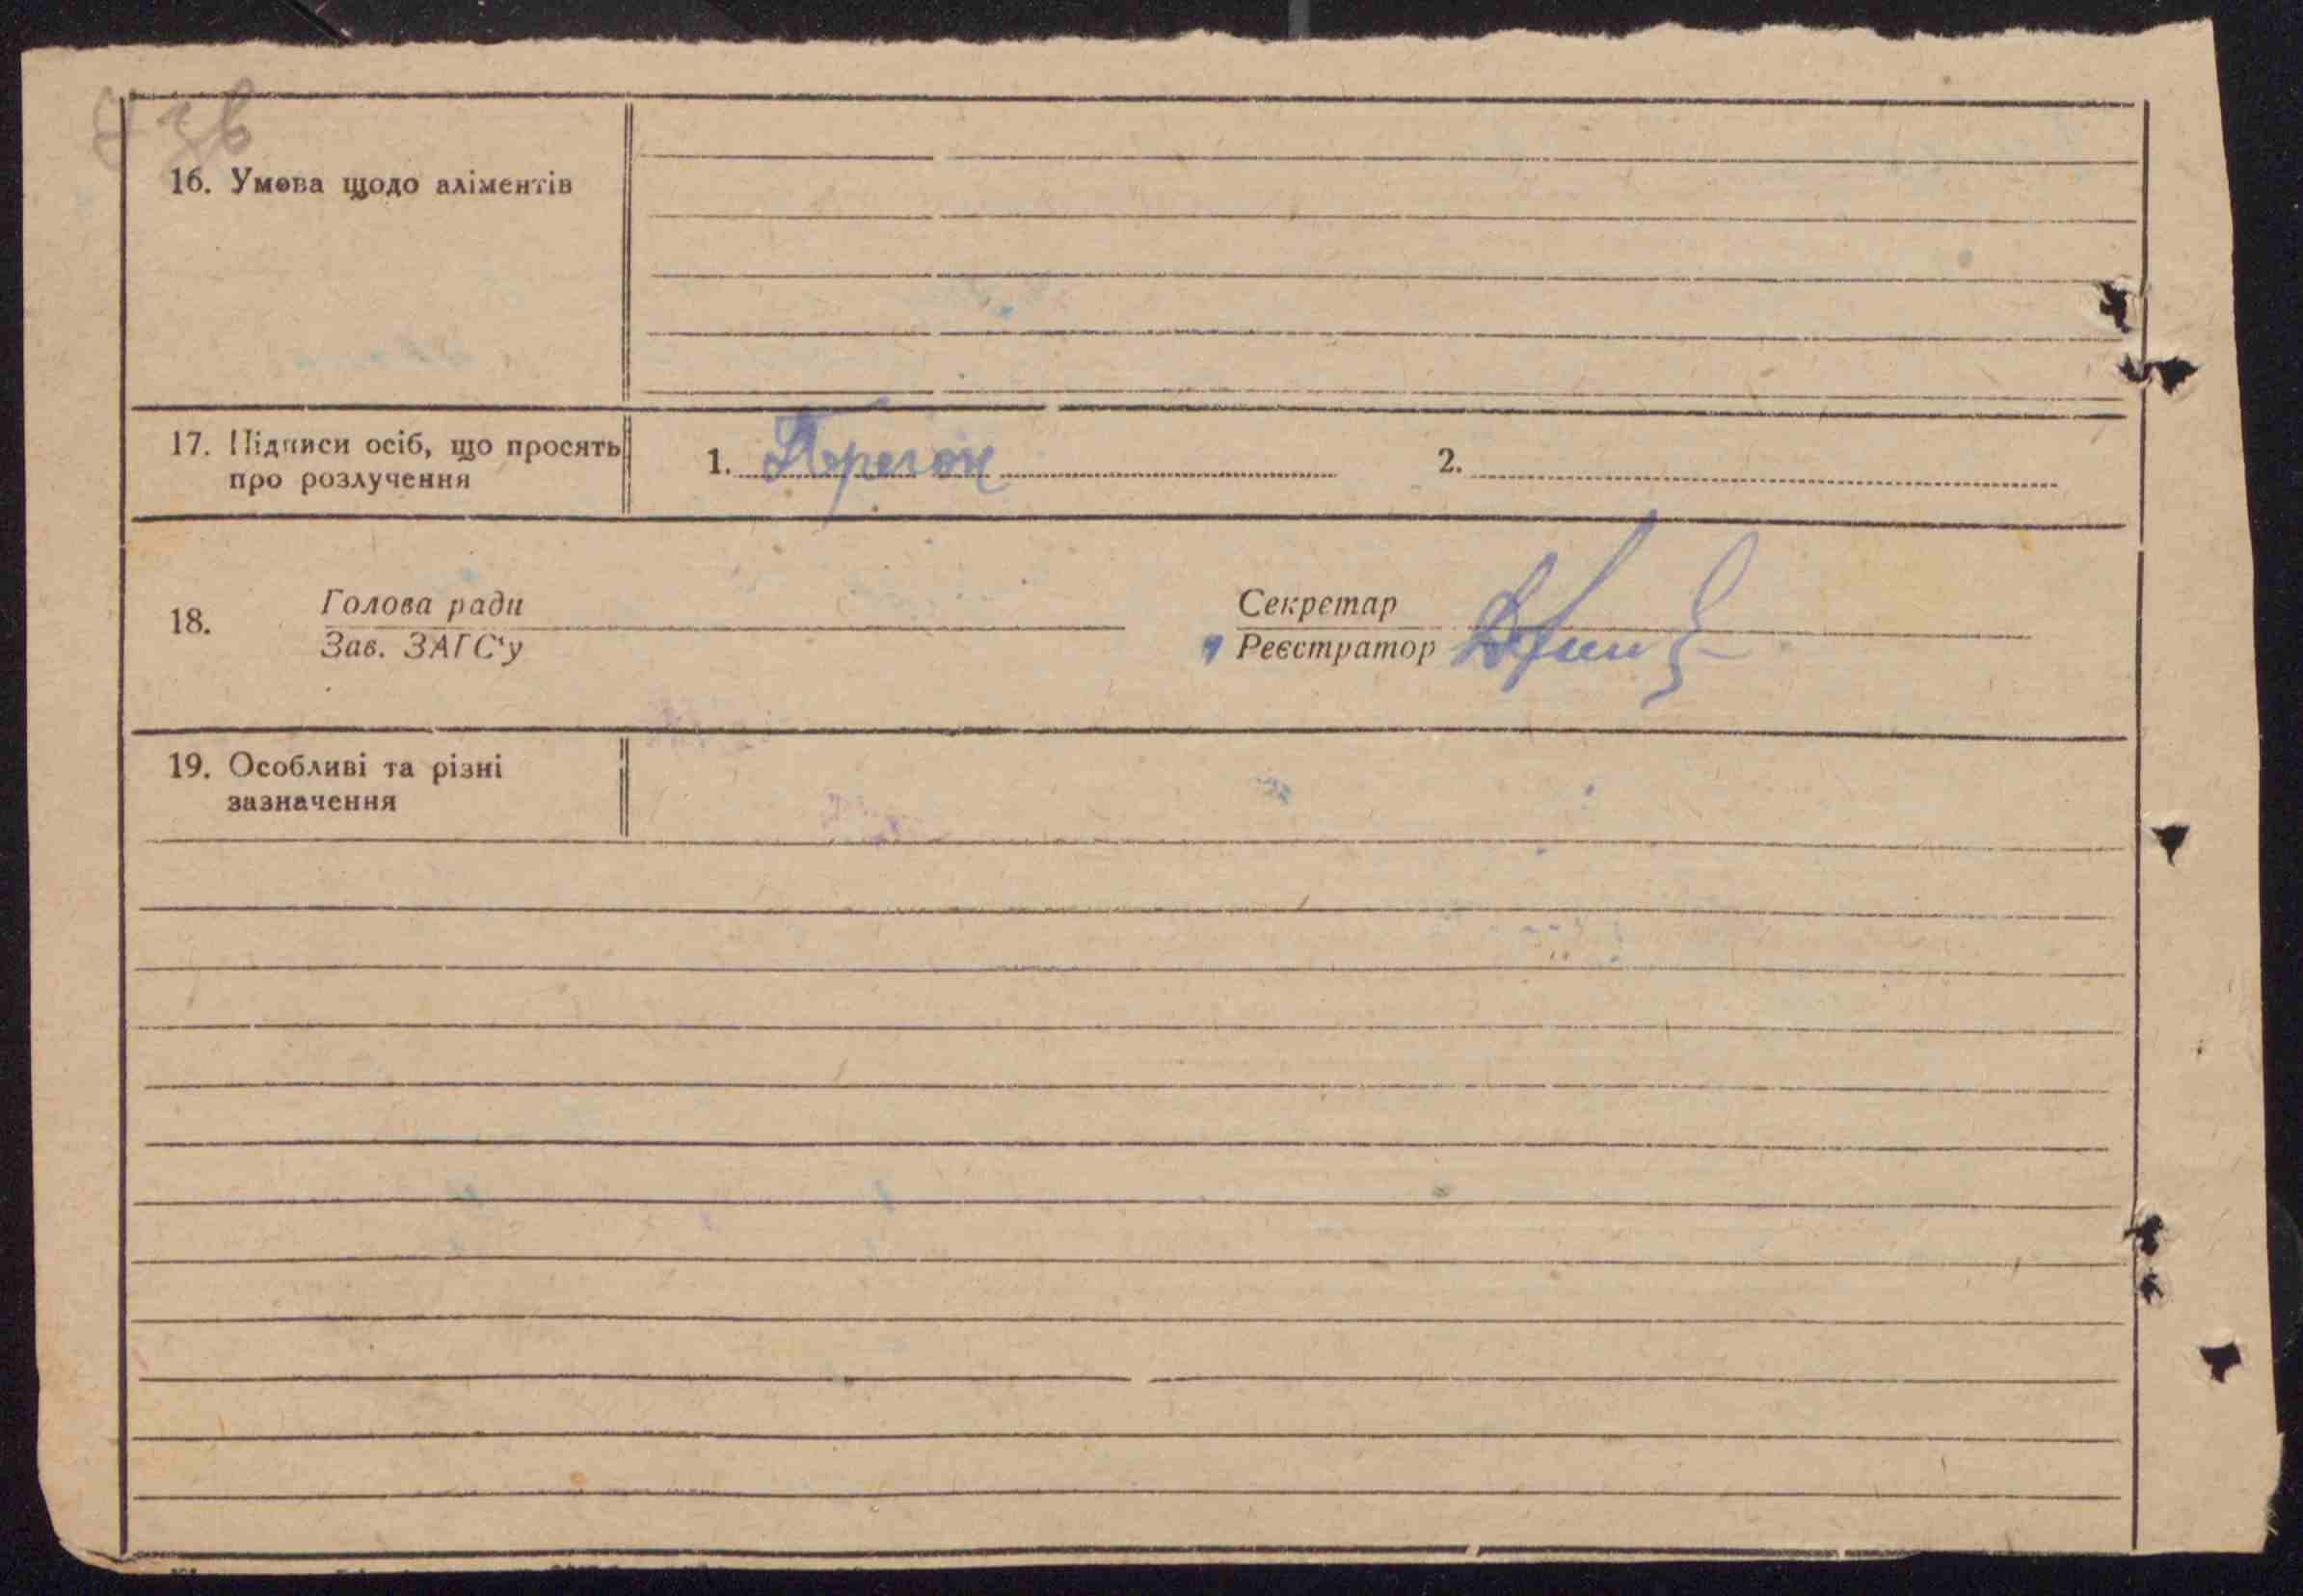 16. Умова щодо аліментів
17. Підписи осіб, що просять
про розлучення
1.
2.
18.
Голова ради
Зав. ЗАГС‘у
Секретар
Реєстратор
19. Особливі та різні
зазначення